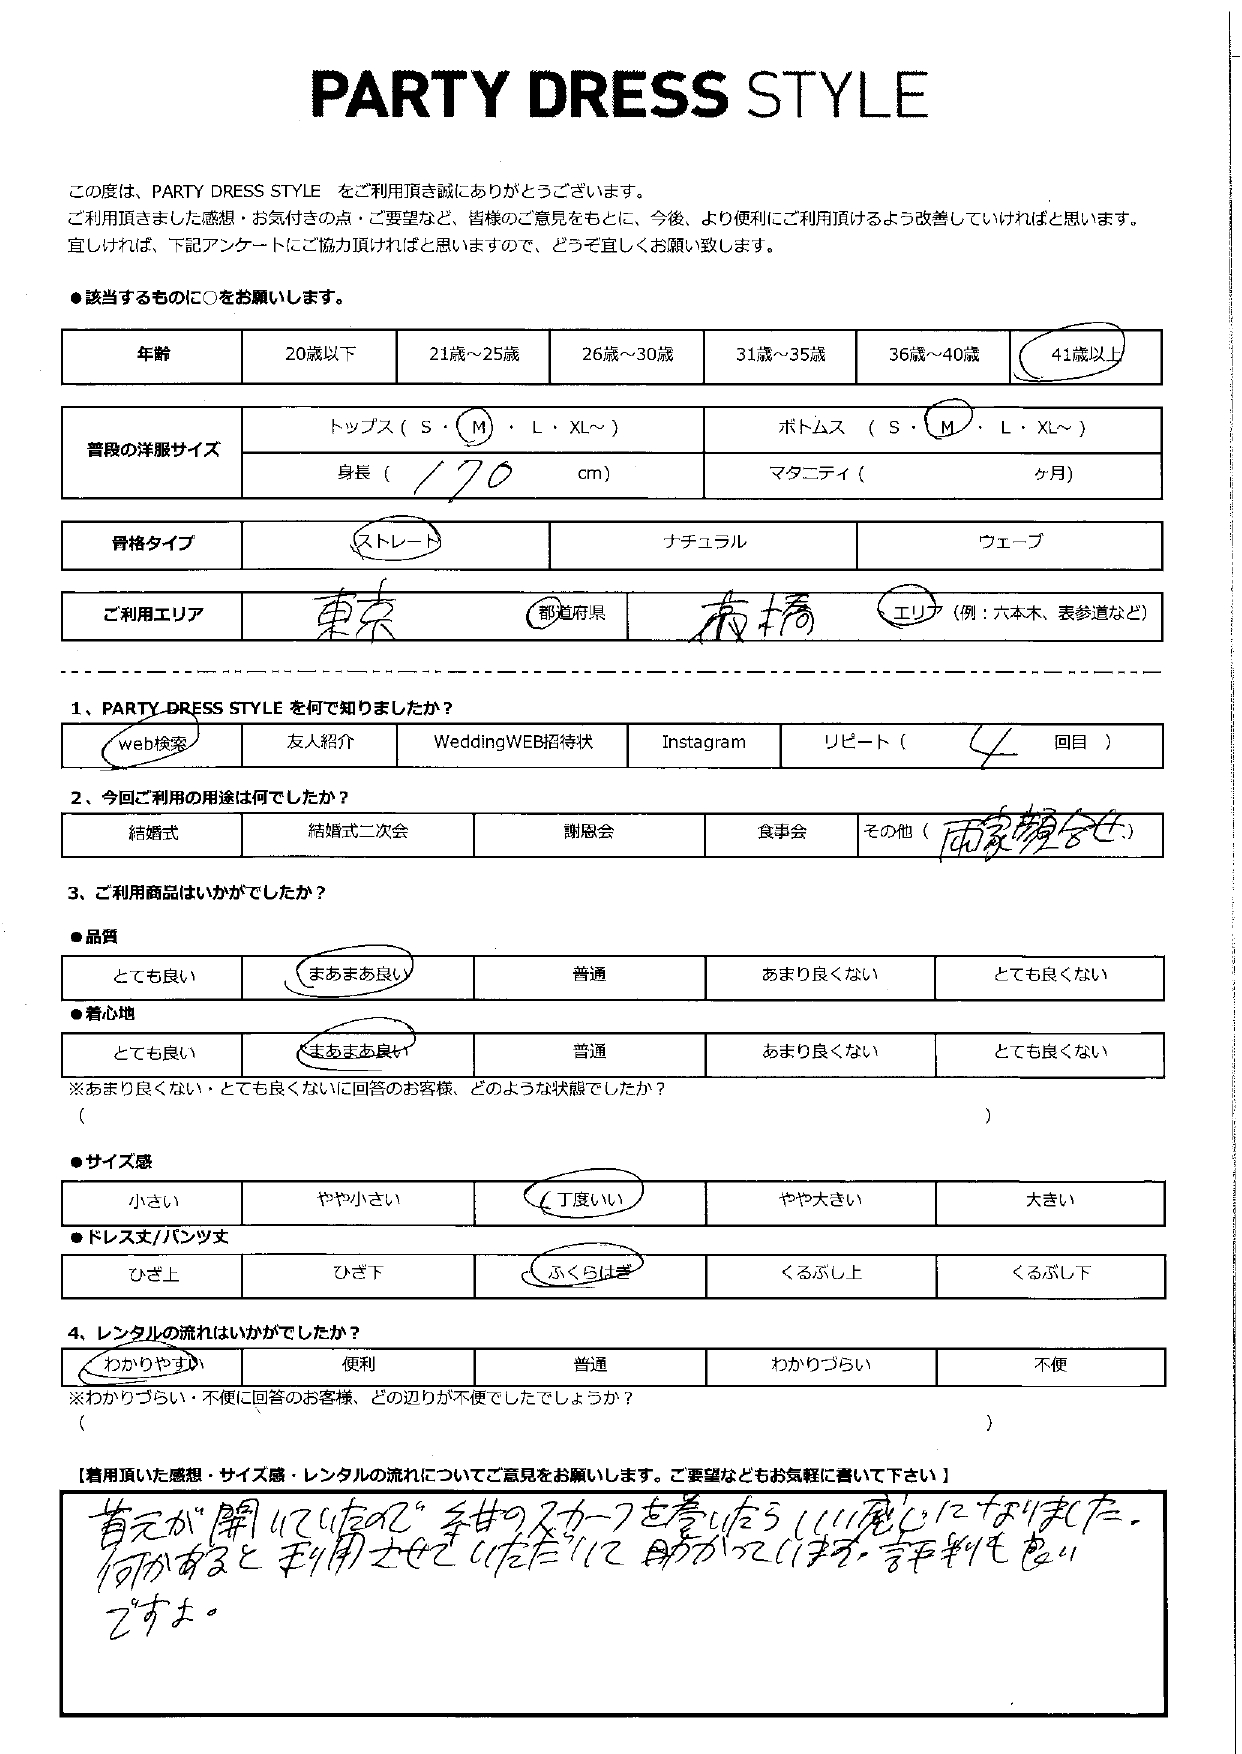 PARTY DRESS STYLE
この度は、PARTY DRESS STYLE をご利用頂き誠にありがとうございます。
ご利用頂きました感想・お気付きの点・ご要望など、皆様のご意見をもとに、今後、より便利にご利用頂けるよう改善していければと思います。
宜しければ、下記アンケートにご協力頂ければと思いますので、どうぞ宜しくお願い致します。
●該当するものに○をお願いします。
年齢 20歳以下 21歳～25歳 26歳～30歳 31歳～35歳 36歳～40歳 41歳以上
普段の洋服サイズ トップス ( S ・ M ・ L ・ XL～ ) ボトムス ( S ・ M ・ L ・ XL～ )
身長 ( 170 cm) マタニティ ( ヶ月)
骨格タイプ ストレート ナチュラル ウェーブ
ご利用エリア 東京 都道府県 板橋 エリア（例：六本木、表参道など）
1、PARTY DRESS STYLE を何で知りましたか？
web検索 友人紹介 WeddingWEB招待状 Instagram リピート（ 4 回目 ）
2、今回ご利用の用途は何でしたか？
結婚式 結婚式二次会 謝恩会 食事会 その他（ 両家顔合せ ）
3、ご利用商品はいかがでしたか？
●品質
とても良い まあまあ良い 普通 あまり良くない とても良くない
●着心地
とても良い まあまあ良い 普通 あまり良くない とても良くない
※あまり良くない・とても良くないに回答のお客様、どのような状態でしたか？
（ ）
●サイズ感
小さい やや小さい 丁度いい やや大きい 大きい
●ドレス丈/パンツ丈
ひざ上 ひざ下 ふくらはぎ くるぶし上 くるぶし下
4、レンタルの流れはいかがでしたか？
わかりやすい 便利 普通 わかりづらい 不便
※わかりづらい・不便に回答のお客様、どの辺りが不便でしたでしょうか？
（ ）
【着用頂いた感想・サイズ感・レンタルの流れについてご意見をお願いします。ご要望などもお気軽に書いて下さい 】
首元が開いていたので紺のスカーフを巻いたらいい感じになりました。
何かあると利用させていただいて助かっています。評判も良い
ですよ。